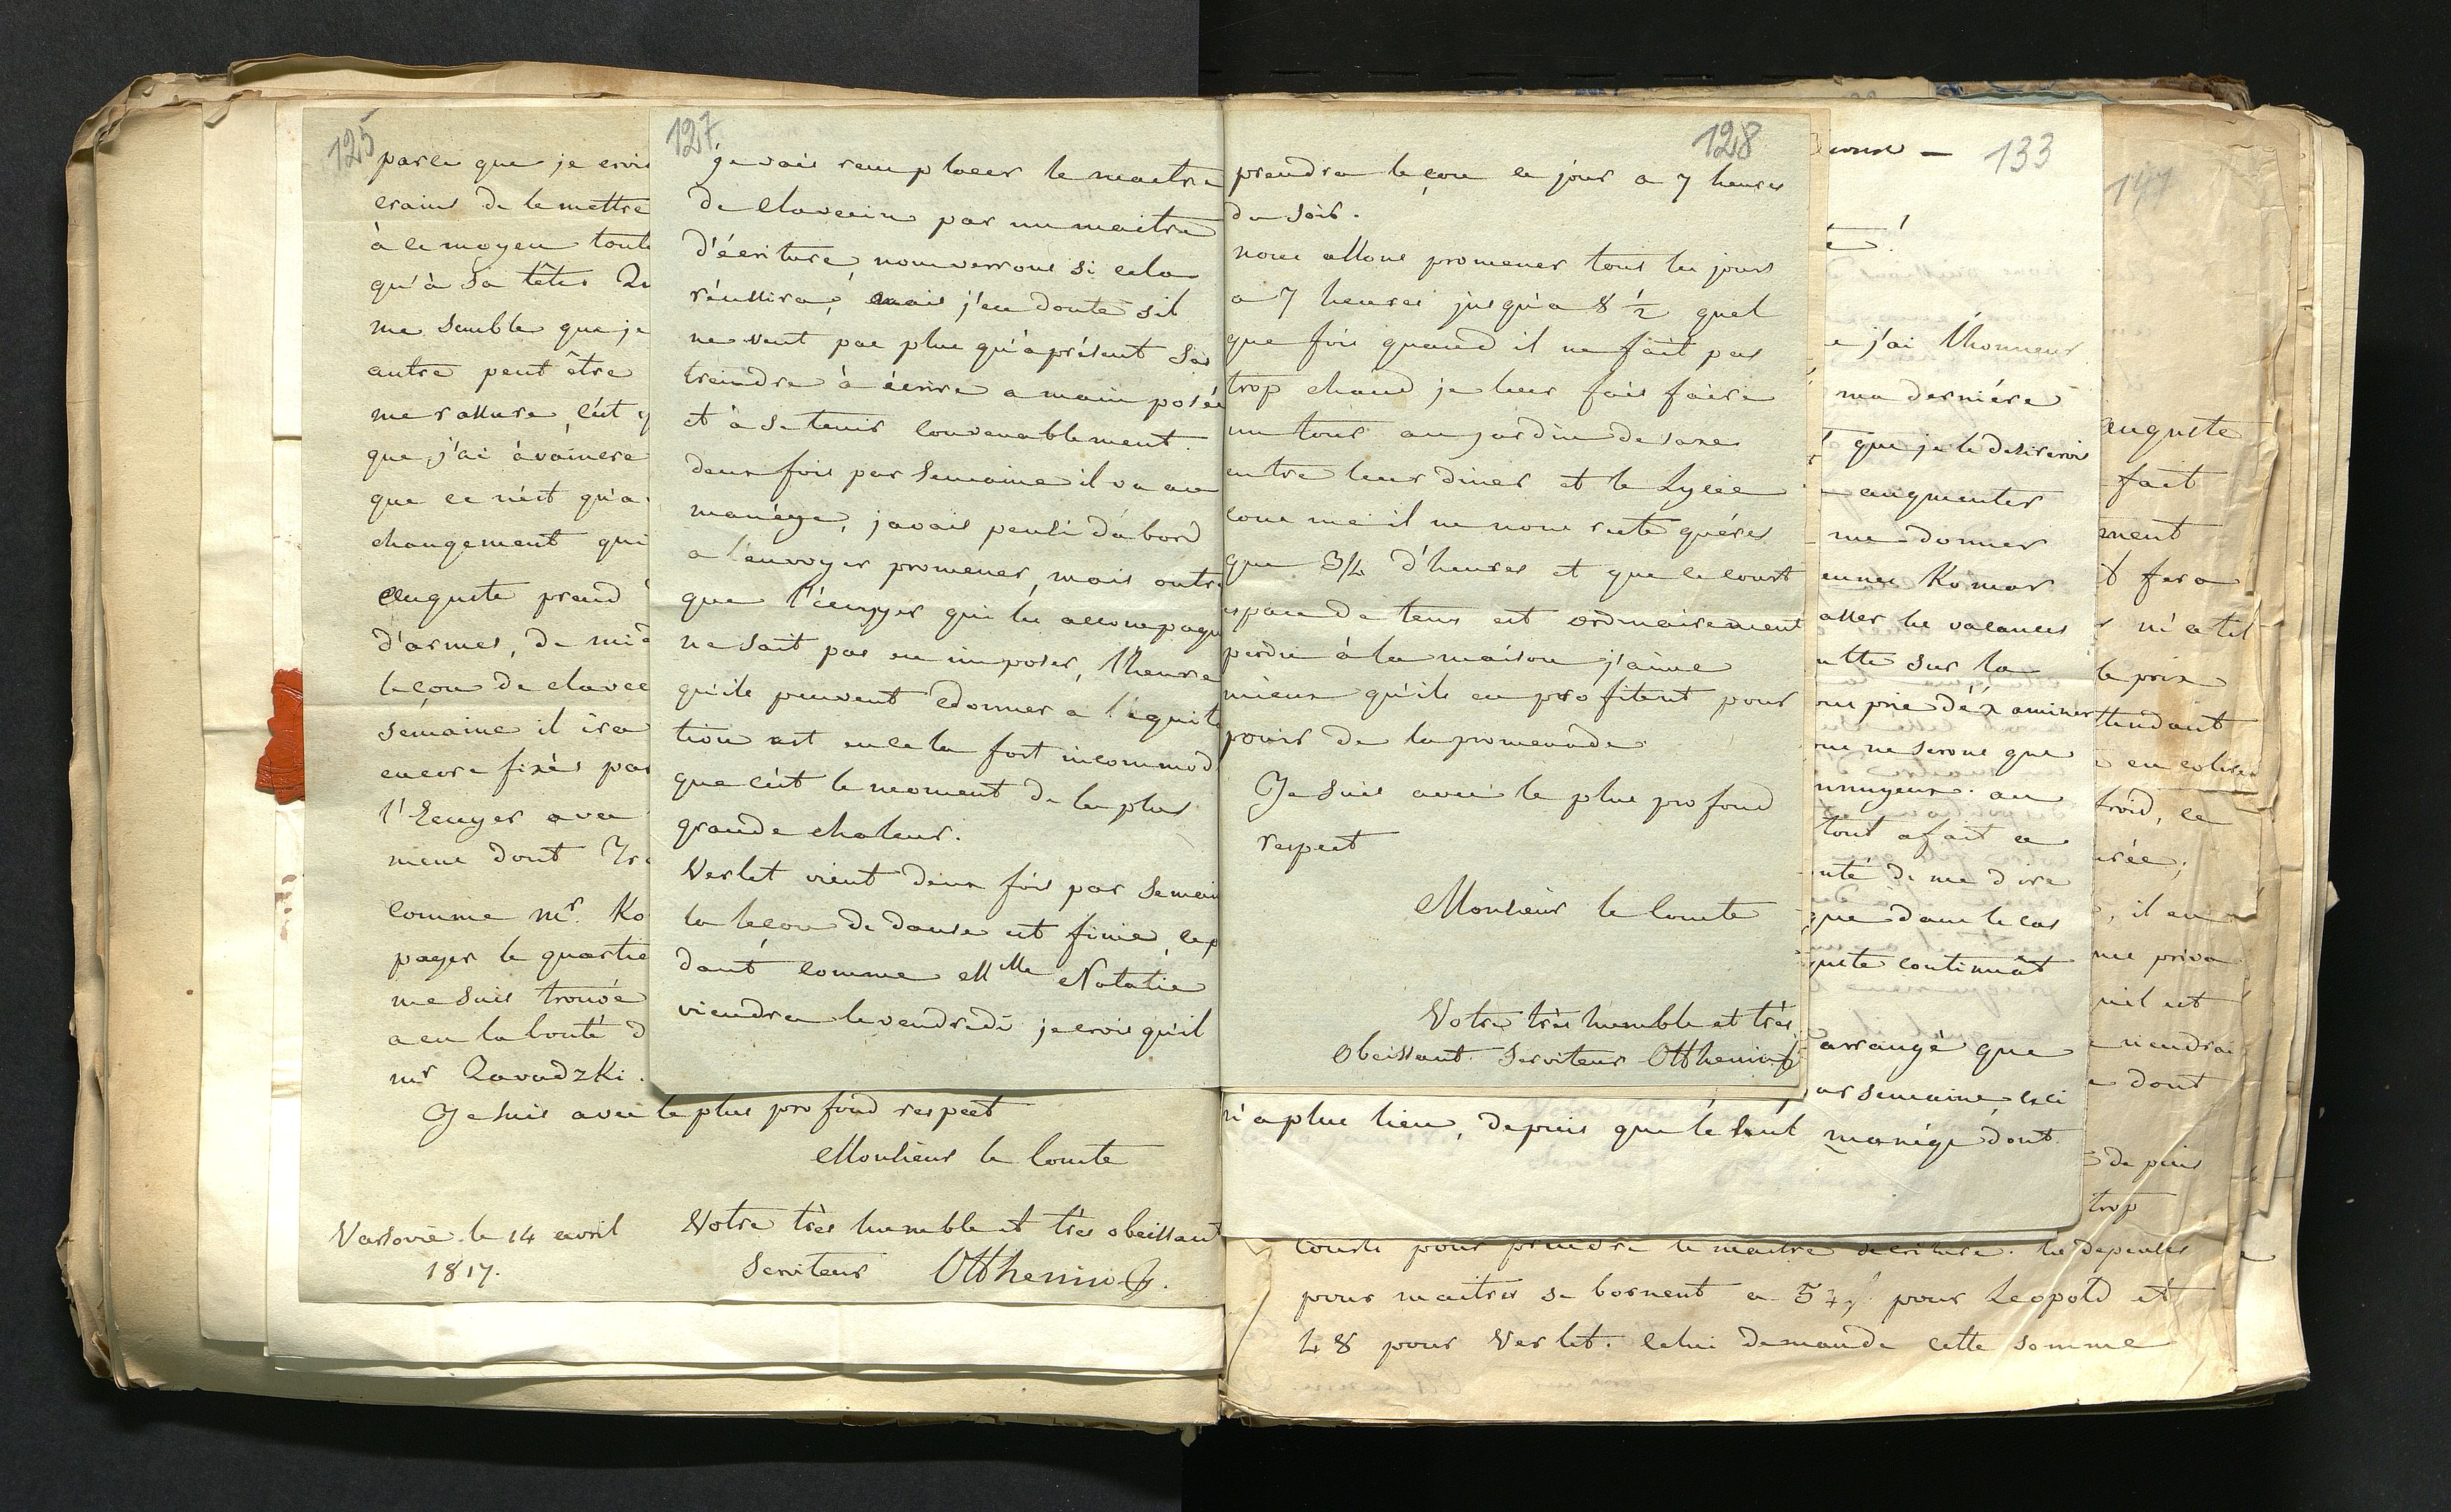 125
parce que je crois
crains de le mettre
à ce moyen tout
qu'à sa tête
me semble que je
autre peut être
me rassure, c'est
que j'ai à vaincre
que ce n'est qu'a
changement qui
Auguste prend
d'armes, de
leçon de clavec
semaine il ira
encore fixés par
l'Ecuyer avec
mene dont
comme mr. Ko
payer le quartie
me suis trouvé
a eu la bonté d
mr Zavadzki.
Je suis avec le plus profond respect
Monsieur le Comte
Varsovie le 14 avril
1817.
Votre très humble et très obeissant
Serviteur Otthenin
127
je vais remplacer le maitre
de clavecin par un maitre
d'écriture, nous verrons si cela
réussira, mais j'en doute s'il
ne veut pas plus qu'à présent s'as
treindre à écrire a main posée
et à se tenir convenablement.
deux fois par semaine il va au
manége, javais pensé d'abord
a l'envoyer promener, mais outre
que l'écuyer qui les accompagn
ne sait pas en imposer, l'heure
qu'ils peuvent donner a l'équita
tion est en cela fort incommod
que c'est le moment de la plus
grande chaleur.
Verlet vient deux fois par semain
la leçon de danse est finie, cep
dant comme Mlle Natalie
viendra le vendredi je crois qu'il
128
prendra leçon ce jour a 7 heures
du soir.
nous allons promener tous les jours
a 7 heures jusqu'a 8 1/2 quel
que fois quand il ne fait pas
trop chaud je leur fais faire
un tour au jardin de saxe
entre leur diner et le Lycée
comme il ne nous reste guéres
que 3/4 d'heures et que ce court
espace de tems est ordinairement
perdu à la maison j'aime
mieux qu'ils en profitent pour
jouir de la promenade.
Je suis avec le plus profond
respect
Monsieur le Comte
Votre très humble et très
Obeissant Serviteur Otthenin
133
e j'ai l'honneur
ma derniére
que je le desirerois
augmenter
me donner
Komar
asser les vacances
ulte sur la
ous prie d'éxaminer
ous ne serons que
ennuyeux. au
tout afait a
onté de me dire
que dans le cas
guste continuât
arrangé que
par semaine, ceci
n'a plus lieu, depuis que le seul manége dont
147
Auguste
fait
ment
t fera
le prix
ttendant
en colere
froid, ce
, il en
me priva
u'il est
viendrai
dont
depuis
trop
courts pour prendre le maitre decriture. les depenses
pour maitres se bornent a 57 # pour Leopold et
48 pour Verlet. celui demande cette somme